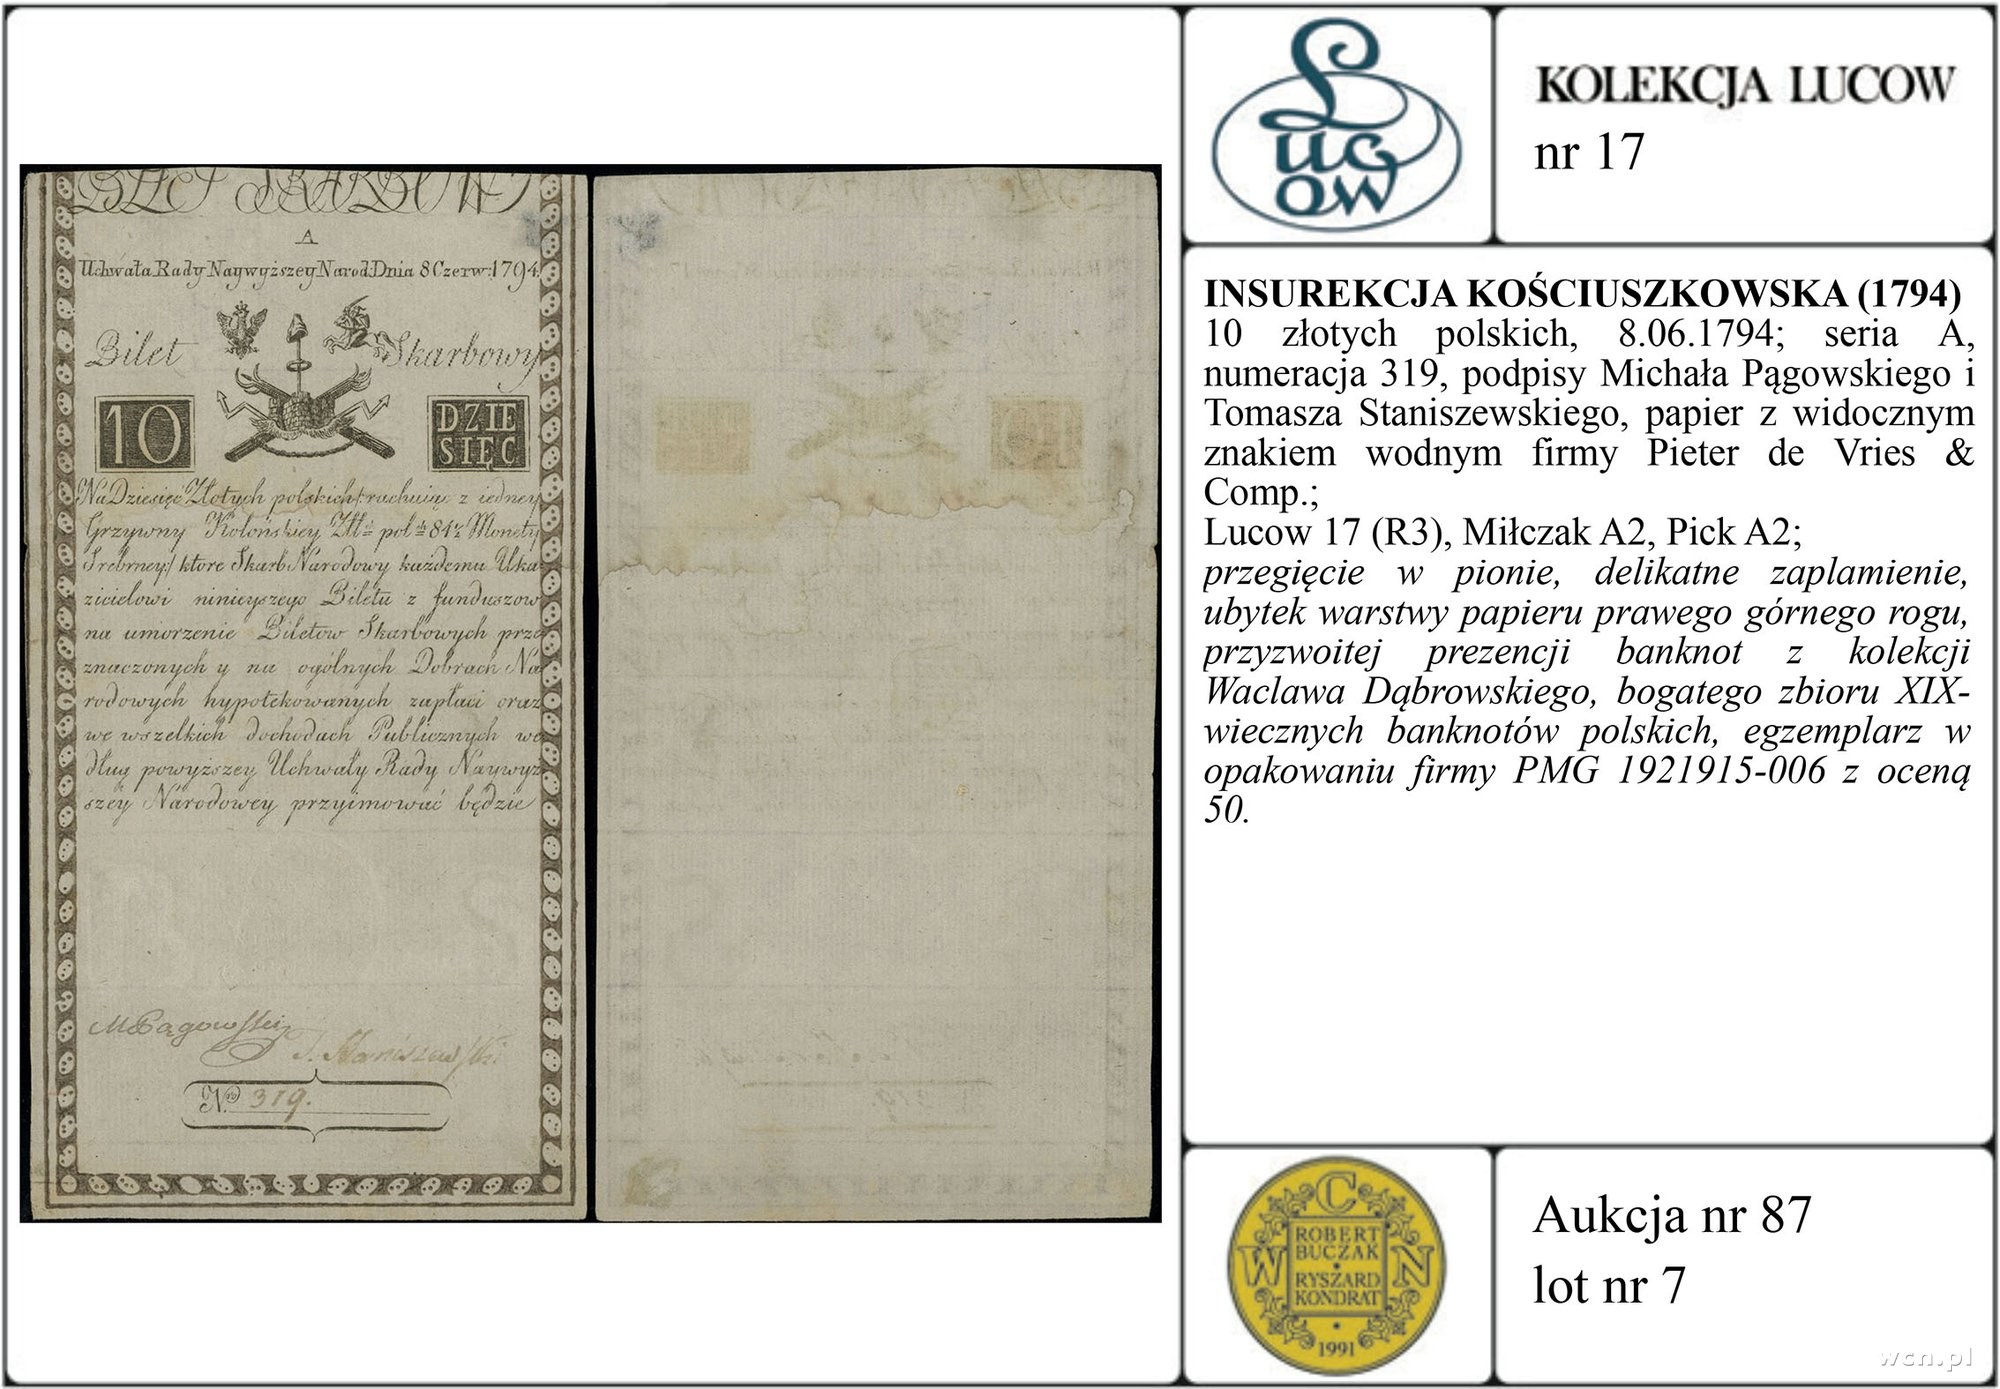 BILET SKARBOWY
A
Uchwała Rady Naywyższey Narod: Dnia 8 Czerw: 1794.
Bilet Skarbowy
10
DZIE
SIĘĆ
Na Dziesięć Złotych polskich /:rachuiąc z iedney
Grzywny Kolońskiey Zł: pol: 84½ Monety
Srebrney:/ ktore Skarb Narodowy każdemu Uka-
zicielowi ninieyszego Biletu z funduszow
na umorzenie Biletow Skarbowych prze-
znaczonych y na ogólnych Dobrach Na-
rodowych hypotekowanych zapłaci oraz
we wszelkich dochodach Publicznych we-
dług powyższey Uchwały Rady Naywyż-
szey Narodowey przyimować będzie
MPągowski
T. Staniszewski
No 319.
Lucow
KOLEKCJA LUCOW
nr 17
INSUREKCJA KOŚCIUSZKOWSKA (1794)
10 złotych polskich, 8.06.1794; seria A,
numeracja 319, podpisy Michała Pągowskiego i
Tomasza Staniszewskiego, papier z widocznym
znakiem wodnym firmy Pieter de Vries &
Comp.;
Lucow 17 (R3), Miłczak A2, Pick A2;
przegięcie w pionie, delikatne zaplamienie,
ubytek warstwy papieru prawego górnego rogu,
przyzwoitej prezencji banknot z kolekcji
Waclawa Dąbrowskiego, bogatego zbioru XIX-
wiecznych banknotów polskich, egzemplarz w
opakowaniu firmy PMG 1921915-006 z oceną
50.
WCN
ROBERT
BUCZAK
RYSZARD
KONDRAT
1991
Aukcja nr 87
lot nr 7
wcn.pl